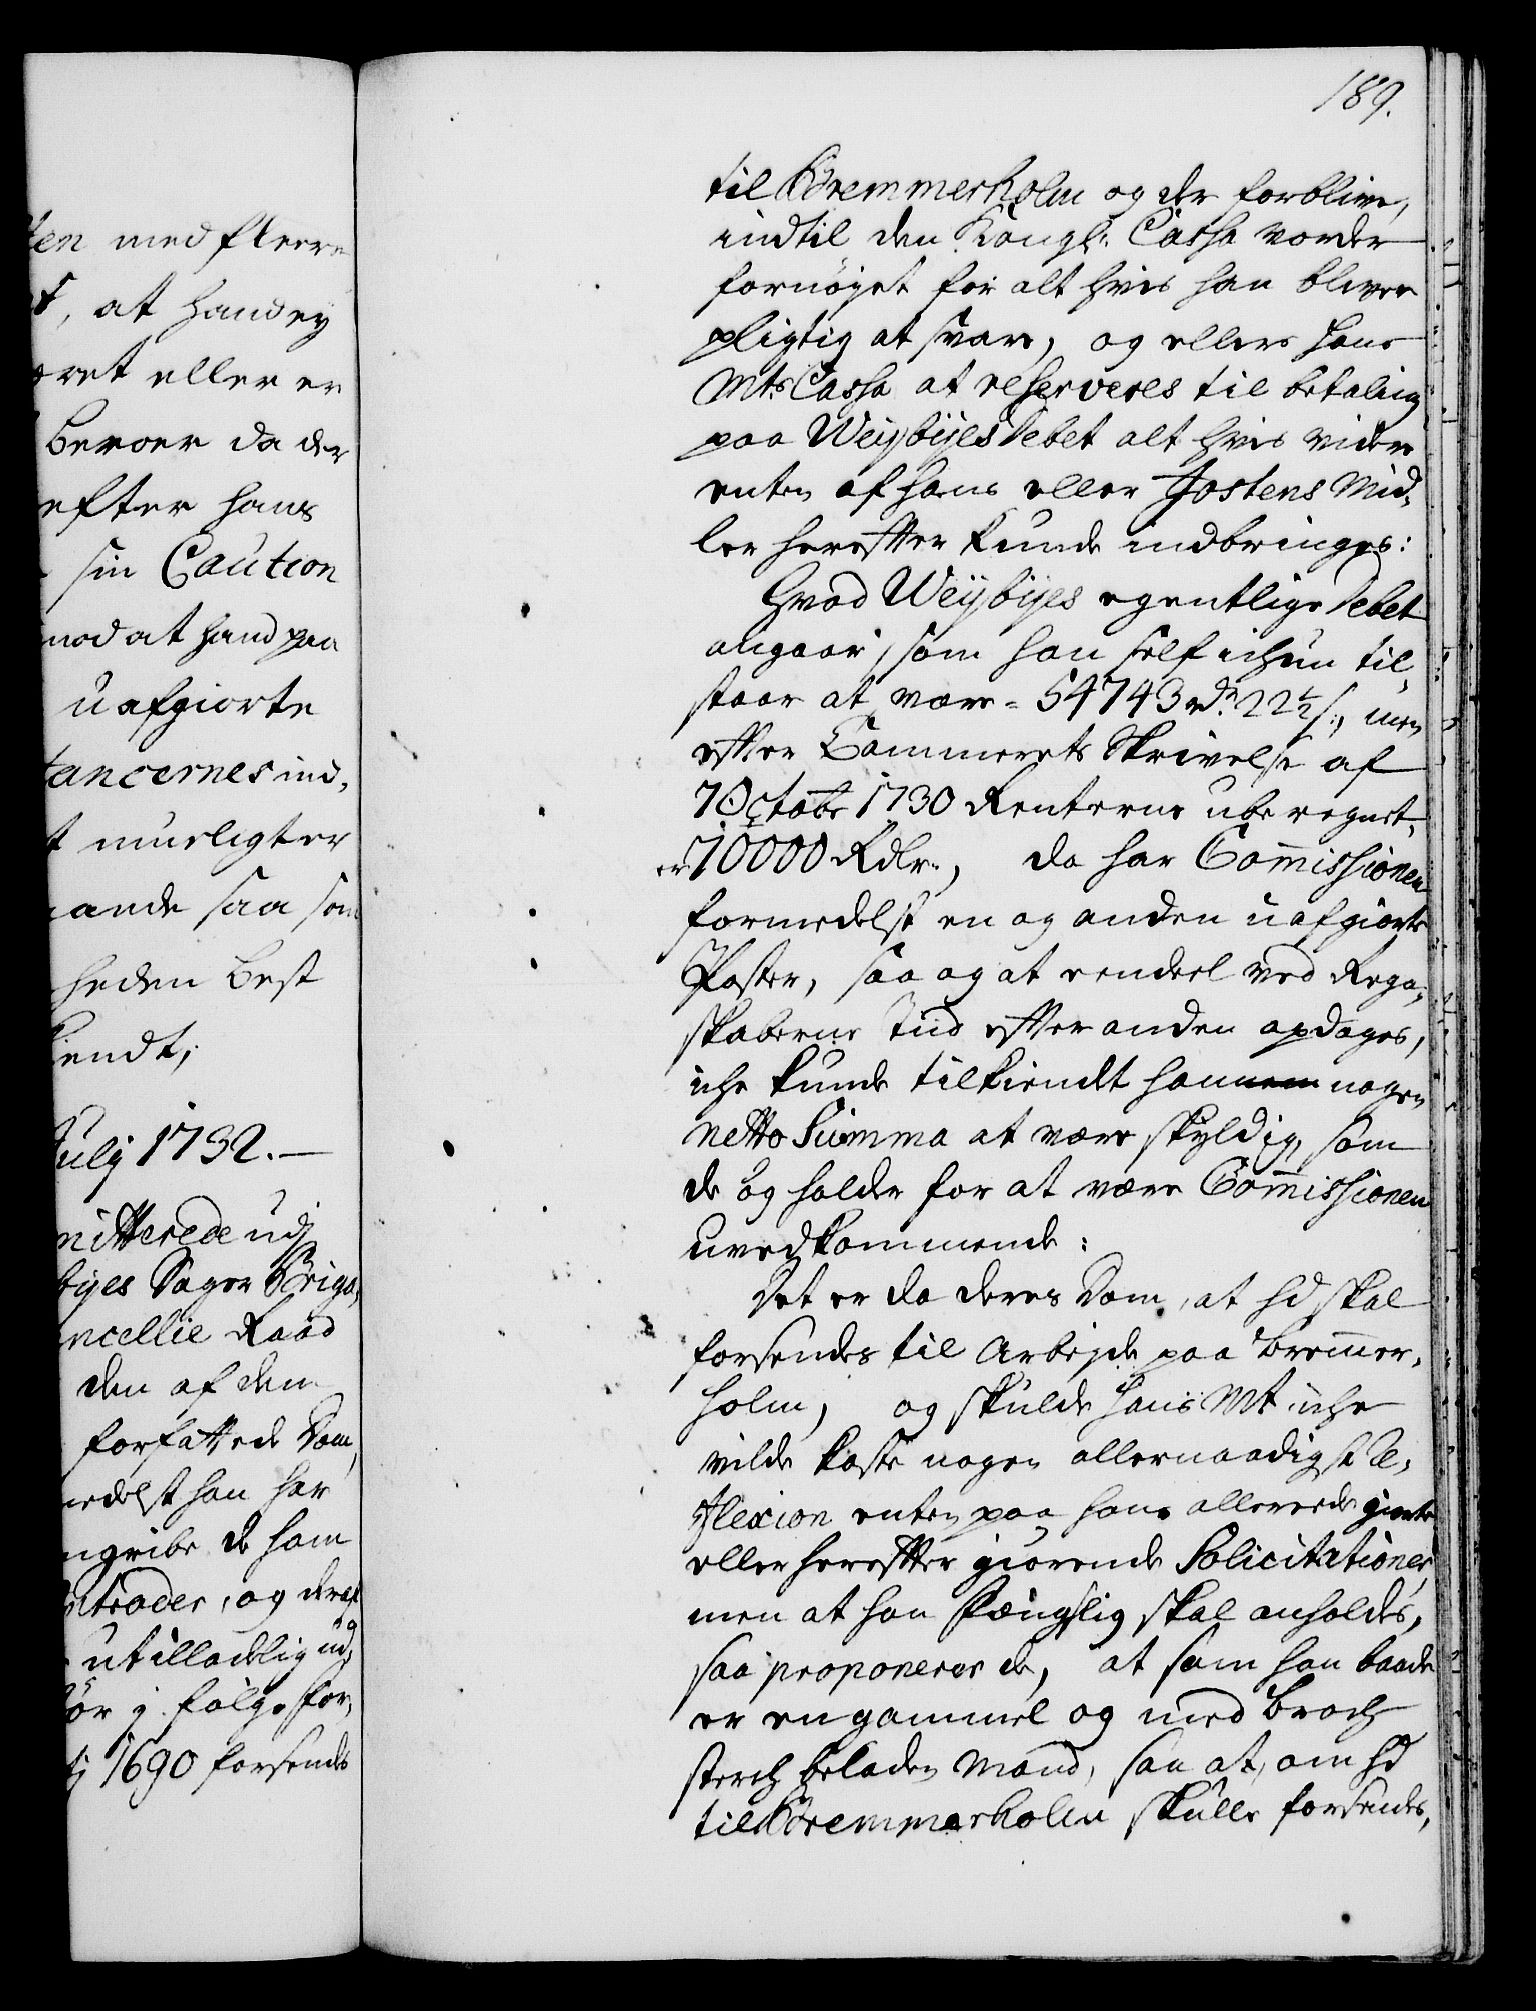 189.
ten med fleere
t, at hand ey
øret eller er
beroer da der
efter hans
sin Caution
mod at hand paa
uafgiorte
tancernes ind,
t mueligt er
ande saa som
heden best
kiendt;
July 1732.
mitterede udj
byes Sager Briga,
ncellie Raad
den af dem
forfattede Dom,
medelst han har
ngribe de ham
ntrader, og deraf
utilladelig ud,
ør j følge for,
tj 1690 forsendes
til Bremmerholm og der forblive,
indtil den Kongl: Cassa vorder
fornøyet for alt hvis han bliver
pligtig at svare, og ellers hans
Mts Cassa at reserveres til betaling
paa Weybyes debet alt hvis videre
enten af hans eller Jostens Mid,
ler herefter kunde indbringes:
Hvad Weybyes egentlige debet
angaar, som han self ichun til,
staar at være = 54743 rdr 22½ s:, men
efter Cammerets Skrivelse af
7 Octobr 1730 Renterne uberegnet,
er 70000 Rdlr., da har Commissionen
formedelst en og anden uafgiorte
Poster, saa og at eendeel ved Regn,
skaberne Tiid efter anden opdages,
iche kunde tilkiendt hannem nogen
netto Summa at være skyldig, som
de og holder for at være Commissionen
uvedkommende:
Det er da deres Dom, at hd skal
forsendes til Arbejde paa Bremmer,
holm, og skulde hans Mt iche
vilde kaste nogen allernaadigst Re,
flexion enten paa hans allerede giorte
eller herefter giørende Solicitationer,
men at han fængslig skal anholdes,
saa proponerer de, at som han baade
er en gammel og med Broch
sterch beladen Mand, saa at, om hd
til Bremmerholm skulle forsendes,